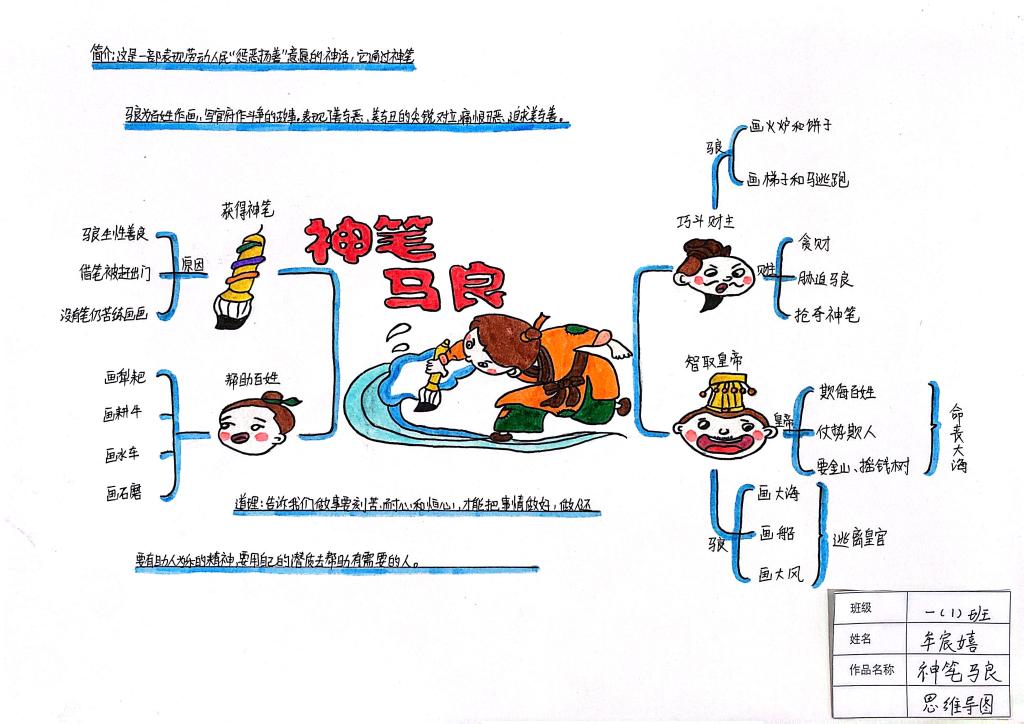 简介:这是一部表现劳动人民"惩恶扬善"意愿的神话,它通过神笔
马良为百姓作画,写官府作斗争的故事。表现了善与恶、美与丑的尖锐对立,痛恨丑恶、追求美与善。
神笔
马良
获得神笔
原因
马良生性善良
借笔被赶出门
没有笔仍苦练画画
帮助百姓
画犁耙
画耕牛
画水车
画石磨
巧斗财主
马良
画火炉和饼子
画梯子和马逃跑
财主
贪财
胁迫马良
抢夺神笔
智取皇帝
皇帝
欺侮百姓
仗势欺人
要金山、摇钱树
命去大海
马良
画大海
画船
画大风
逃离皇宫
道理:告诉我们做事要刻苦、耐心和恒心,才能把事情做好,做人还
要有助人为乐的精神,要用自己的潜质去帮助有需要的人。
班级 一(1)班
姓名 牟宸嬉
作品名称 神笔马良
思维导图